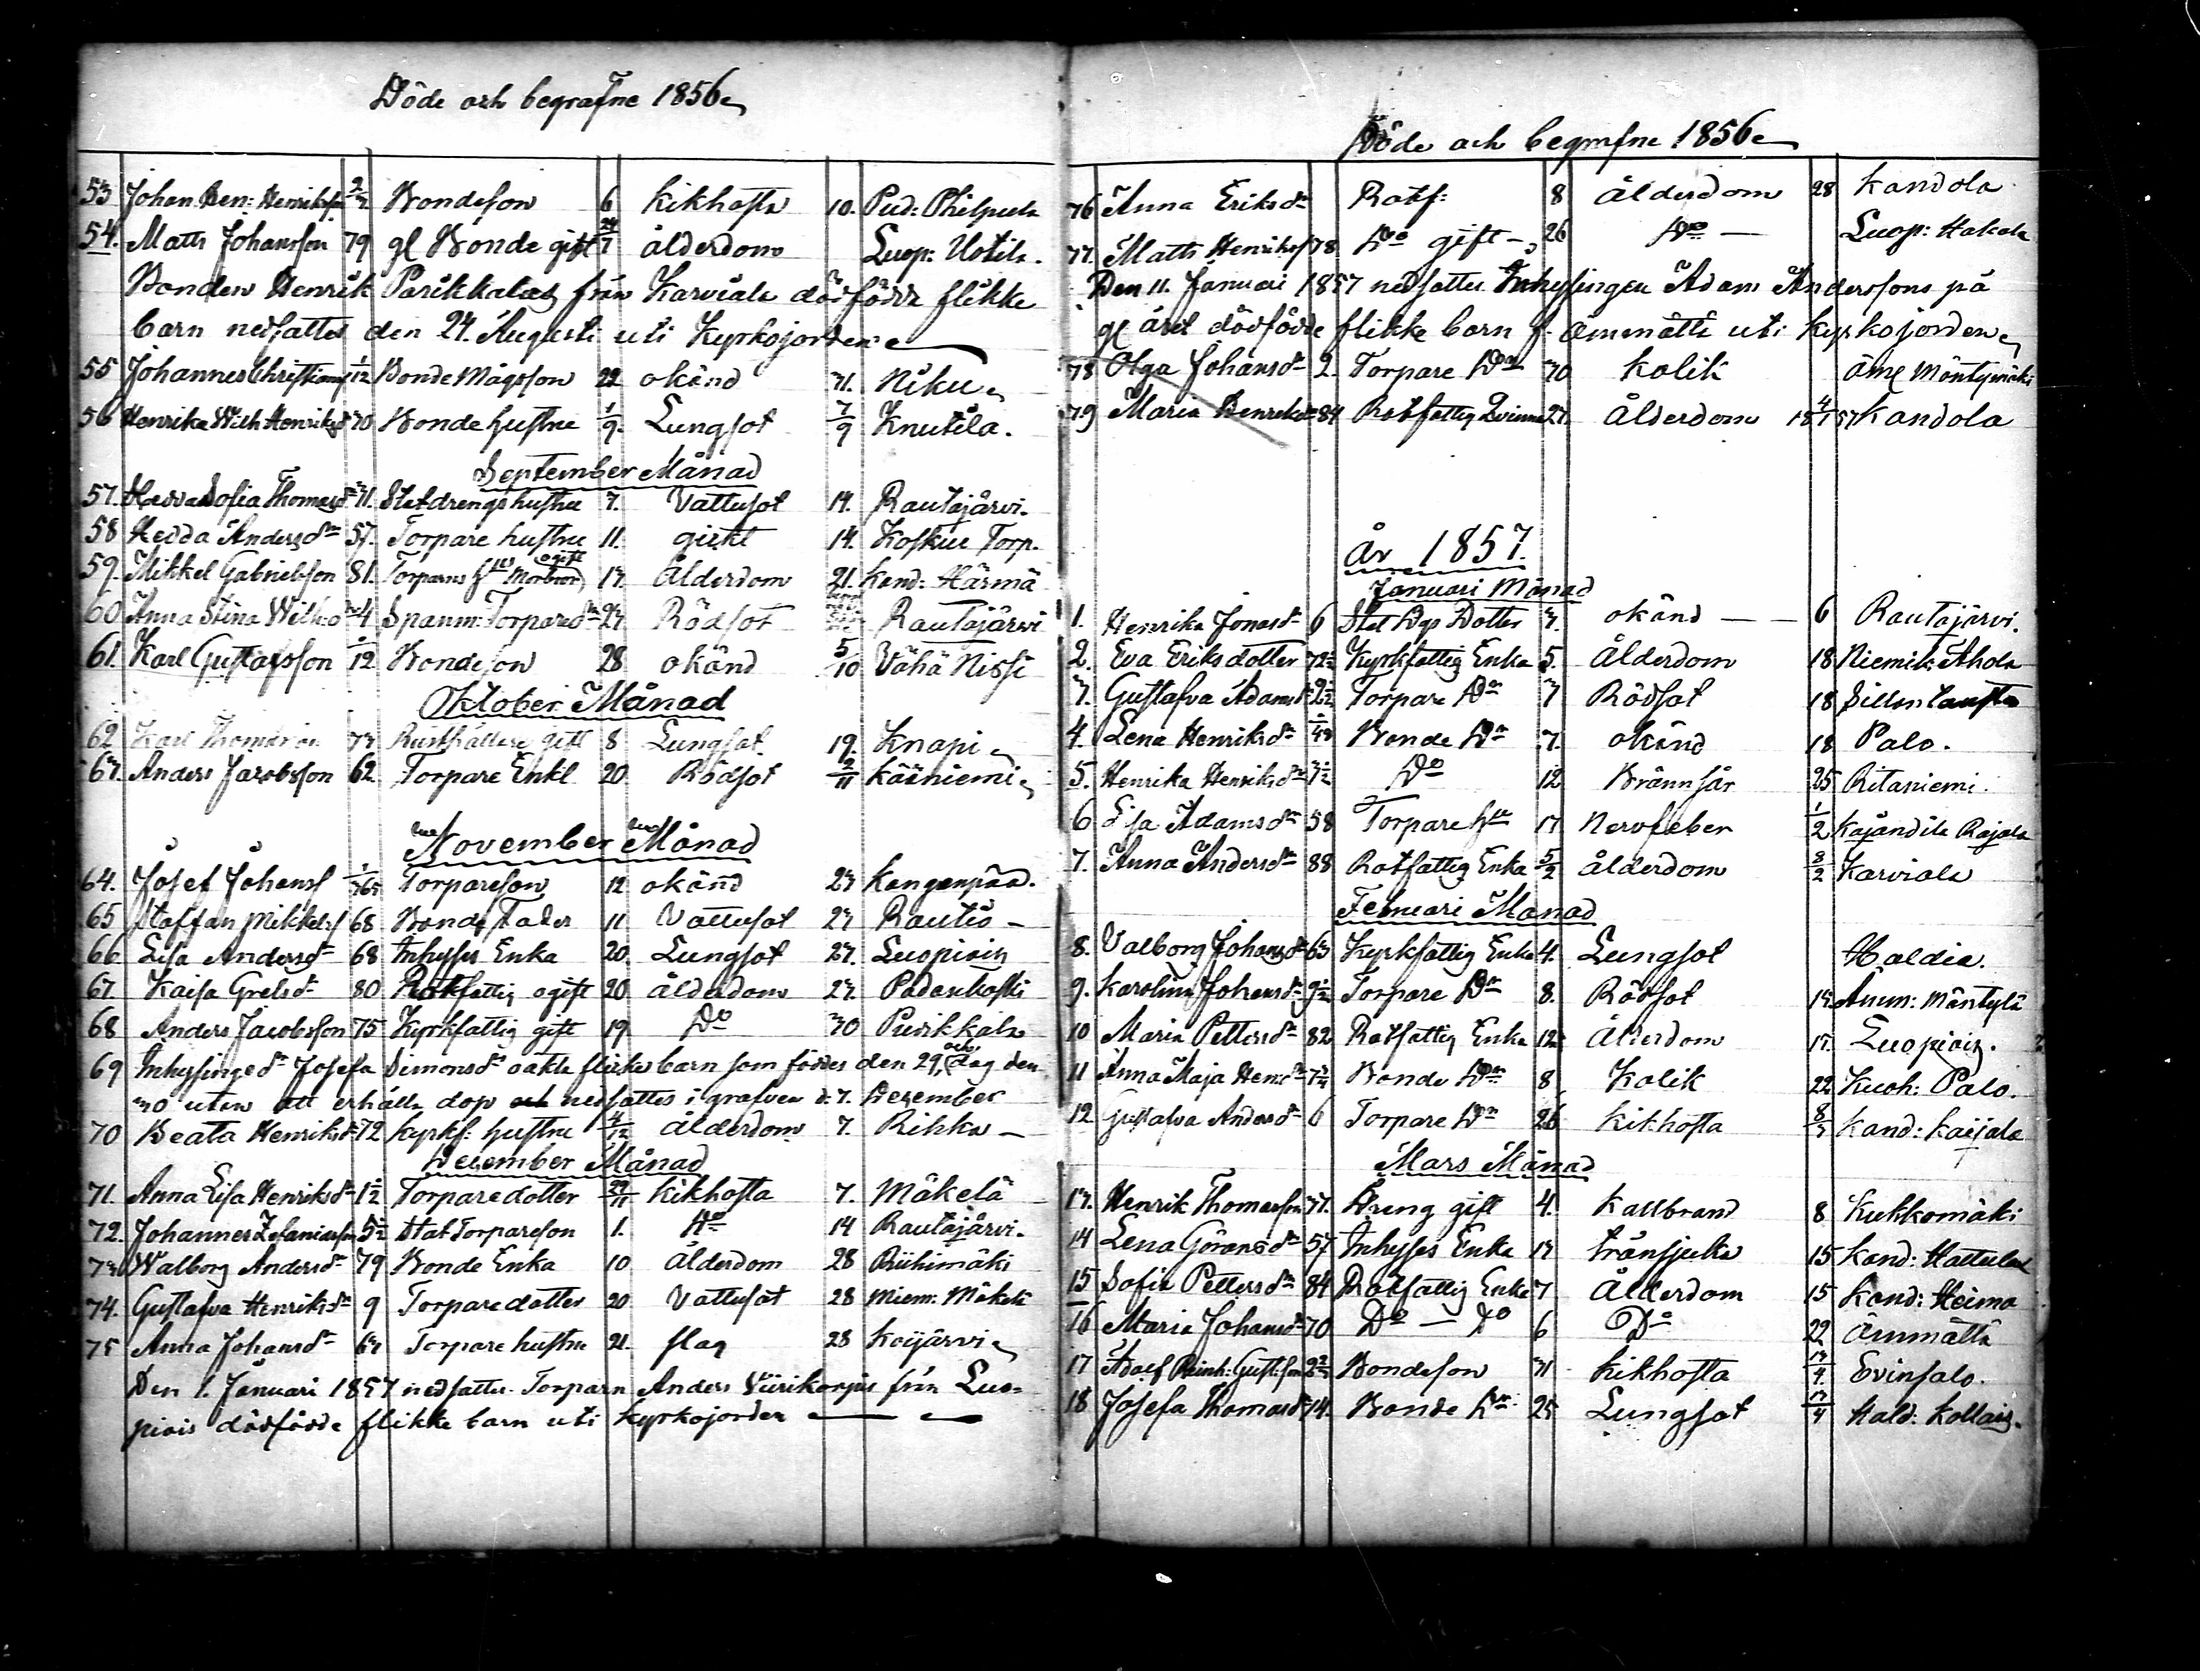 Döde och begrafne 1856
53 Johan Ben: Henriksson Bondeson 6 Kikhosta 10. Pud: Philpula
54. Matts Johansson 79 gl Bonde gift 24/7 ålderdom Luop: Uotila.
Bonden Henrik Parikkalas från Karviala dödfödde flikke
barn nedsattes den 24. Augusti uti Kyrkojorden
55 Johannes Christians 1/12 Bonde Mågsson 22 okänd 31. Niku
56 Henrika Wilh Henriksd 30 Bonde hustru 1/9 Lungsot 7/9 Knutila.
September Månad
57. Hedda Sofia Thomasdr 31. Statdrengs hustru 7. Vattusot 14. Rautajärvi.
58 Hedda Andersdr 57. Torpare hustru 11. gickt 14. Koskue Torp.
59. Mikkel Gabrielsson 81. Torparns Hus Morbror ogift 13. Ålderdom 21. Kand: Härmä
60 Anna Stina Wilh:dr 4 Spanm: Torpare dr 23 Rödsot Rautajärvi
61. Karl Gustafsson /12 Bondeson 28 okänd 5/10 Vähä Nissi
Oktober Månad
62 Karl Thomasson 33 Rusthållare gift 8 Lungsot. 19. Knapi
63. Anders Jacobsson 62. Torpare Enkl 20. Rödsot 2/11 Kääniemi
November Månad
64. Josef Johanss 1/365 Torpareson 12 okänd 23 Kangenpää.
65 Staffan Mikkels 68 Bonde Fader 11 Vattusot 23 Rautio
66 Lisa Andersdr 68 Inhyses Enka 20. Lungsot 23. Luopiois
67 Kaisa Grelsdr 80 Rotfattig ogift 20 ålderdom 23. Padankoski
68 Anders Jacobsson 75 Kyrkfattig gift 19. Do 30 Purikkala
69 Inhysinge dr Josefa Simonsdr oäkta flicke barn som föddes den 29, och dog den
30 utan att erhålla dop nedsattes i grafven d: 7. December
70 Beata Henriksdr 72 Kyrkf: hustru 4/12 Ålderdom 7. Rihko
December Månad
71. Anna Lisa Henriksdr 1 1/2 Torparedotter 29/11 Kikhosta 7. Mäkelä
72. Johannes Zefaniasson 5 1/2 Stat Torpareson 1. Do 14 Rautajärvi.
73 Walborg Andersdr 79 Bonde Enka 10 Ålderdom 28 Riihimäki
74. Gustafva Henriksdr 9 Torparedotter 20 Vattusot 28 Niem: Mäkelä
75 Anna Johansdr 63 Torpare hustru 21. slag 28 Koijärvi
Den 1. Januari 1857 nedsattes Torparn Anders Viirikorpis från Luo-
piois dödfödde flikke barn uti Kyrkojorden
Döde och begrafne 1856
76 Anna Eriksdr Rotf: 8 Ålderdom 28 Kandola
77. Matts Henrikss 78 Do gift 26 Do Luop: Hakala
Den 11. Januari 1857 nedsattes Inhysingen Adam Anderssons på
gl året dödfödde flikke barn f. Ämmättä uti Kyrkojorden
78 Olga Johansdr 2. Torpare Dr 30 Kolik Äm Mäntymäki
79 Maria Henriksdr 84 Rotfattig Qvinna 27. Ålderdom 18 4/1 57 Kandola
År 1857.
Januari Månad
1. Henrika Jonasdr 6 Stat Dgs Dotter 3. okänd 6 Rautajärvi.
2. Eva Eriksdotter 72 1/2 Kyrkfattig Enka 5. Ålderdom 18 Niemik: Ahola
3. Gustafva Adamsdr 2 1/2 Torpare Dr 7 Rödsot 18
4. Lena Henriksdr Bonde Dr 7. okänd 18 Palo.
5. Henrika Henriksdr 3 1/2 Do 12 Brännsår 25 Ritaniemi.
6 Lisa Adamsdr 58 Torpare hu 17 Nervfeber 1/2 Kajandila Rajala
7. Anna Andersdr 88 Rotfattig Enka 5/2 ålderdom 8/2 Karviala
Februari Månad
8. Valborg Johansdr 63 Kyrkfattig Enka 4. Lungsot Haldia.
9. Karolina Johansdr 9 1/2 Torpare Dr 8. Rödsot 13 Ämm: Mäntylä
10 Maria Pettersdr 82 Rotfattig Enka 12 Ålderdom 17. Luopiois.
11 Anna Maja Henr:dr 3/4 Bonde Dr 8 Kolik 22 Kuoh: Palo.
12 Gustafva Andersdr 6 Torpare Dr 26 Kikhosta 8/3 Kand: Kaijala
Mars Månad
13. Henrik Thomasson 37. Dreng gift 4. Kallbrand 8 Kukkomäki
14 Lena Göransdr 57 Inhyses Enka 13 tränsjuka 15 Kand: Hattula
15 Sofia Pettersdr 84 Rotfattig Enka 7 Ålderdom 15 Kand: Heimo
16 Maria Johansdr 70 Do — Do 6 Do 22 Ämmättä
17 Adolf Reinh: Gustafson 2 2/3 Bondeson 31 Kikhosta 13/4 Evinsalo.
18 Josefa Thomasdr 14. Bonde Dr 25 Lungsot 13/4 Hald: Kollais.